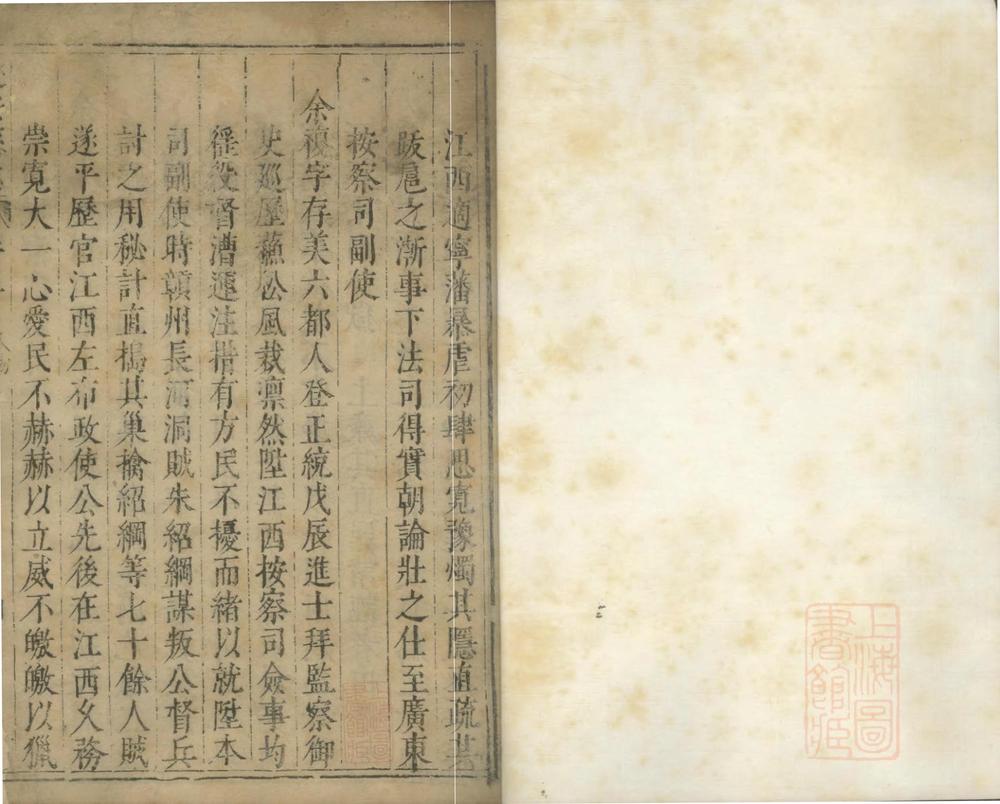 江西適寧藩暴虐初肆思寬豫燭其隱直疏其
跋扈之漸事下法司得實朝論壯之仕至廣東
按察司副使
余複字存美六都人登正統戊辰進士拜監察御
史廵歷蘓松風裁凛然陞江西按察司僉事均
徭役督漕運注措有方民不擾而緒以就陞本
司副使時贛州長河洞賊朱紹綱謀叛公督兵
討之用秘計直搗其巢擒紹綱等七十餘人賊
遂平歷官江西左布政使公先後在江西久務
崇寛大一心愛民不赫赫以立威不皦皦以獵
上海圖
書館藏